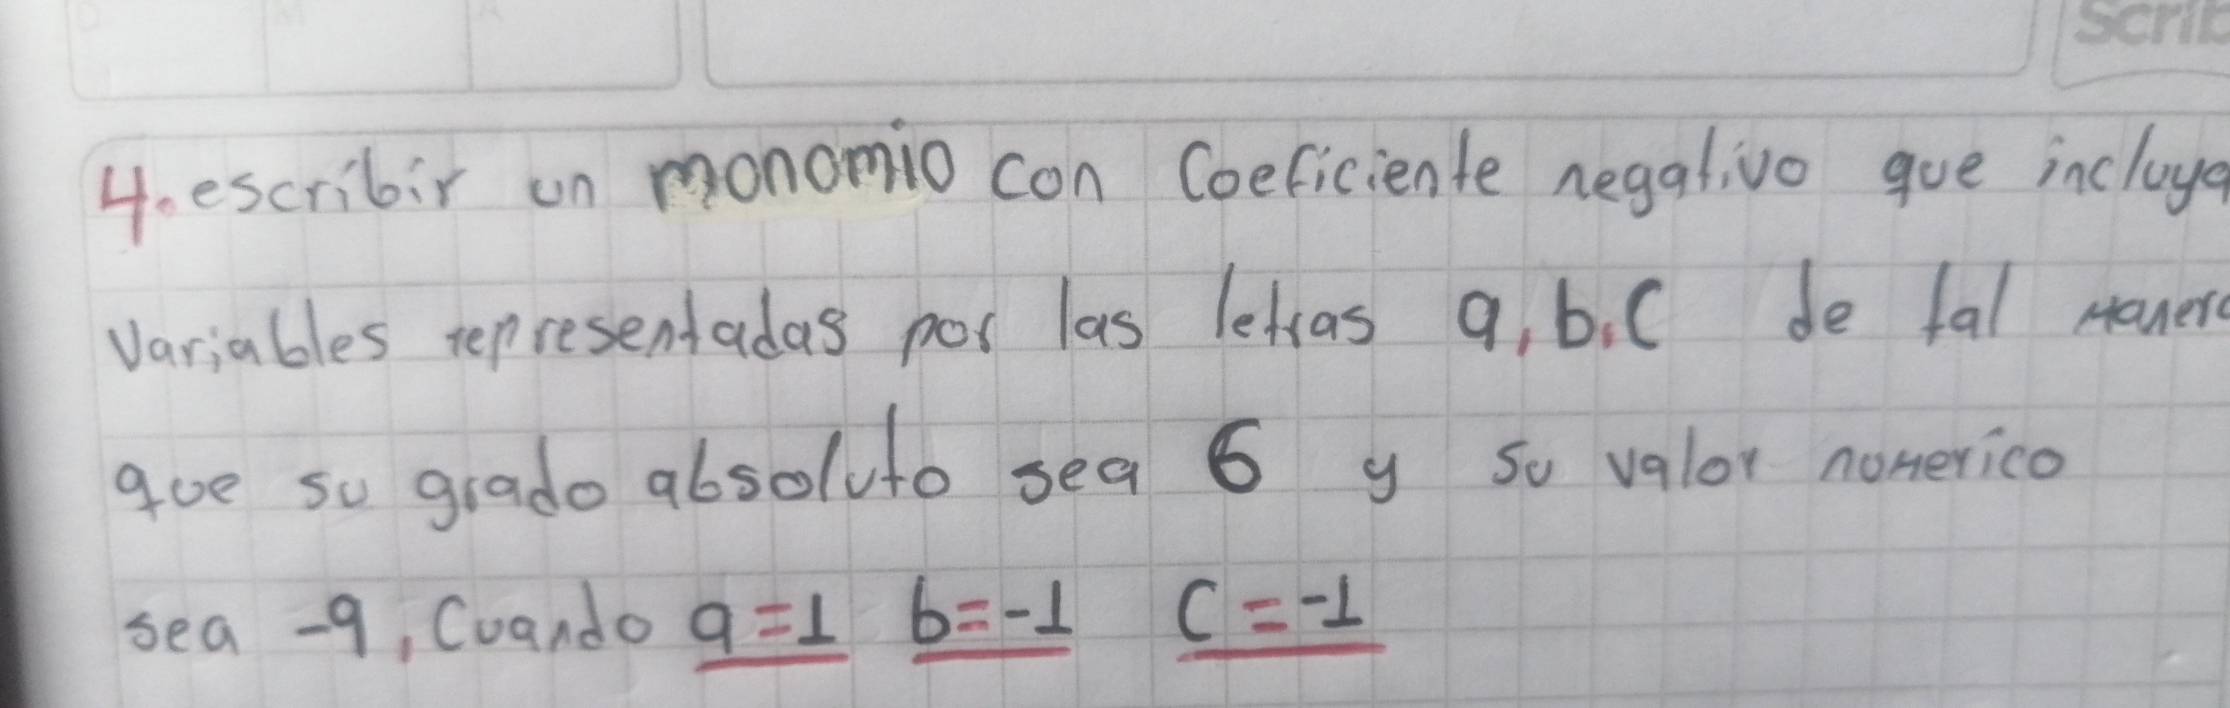 Scrib
4. escribir un monomio con Coeficiente negativo que incluya
Variables representadas por las letras a, b, C de tal manera
que su grado absoluto sea 6 y su valor numerico
sea -9, Cuando a=1 b=-1 C=-1